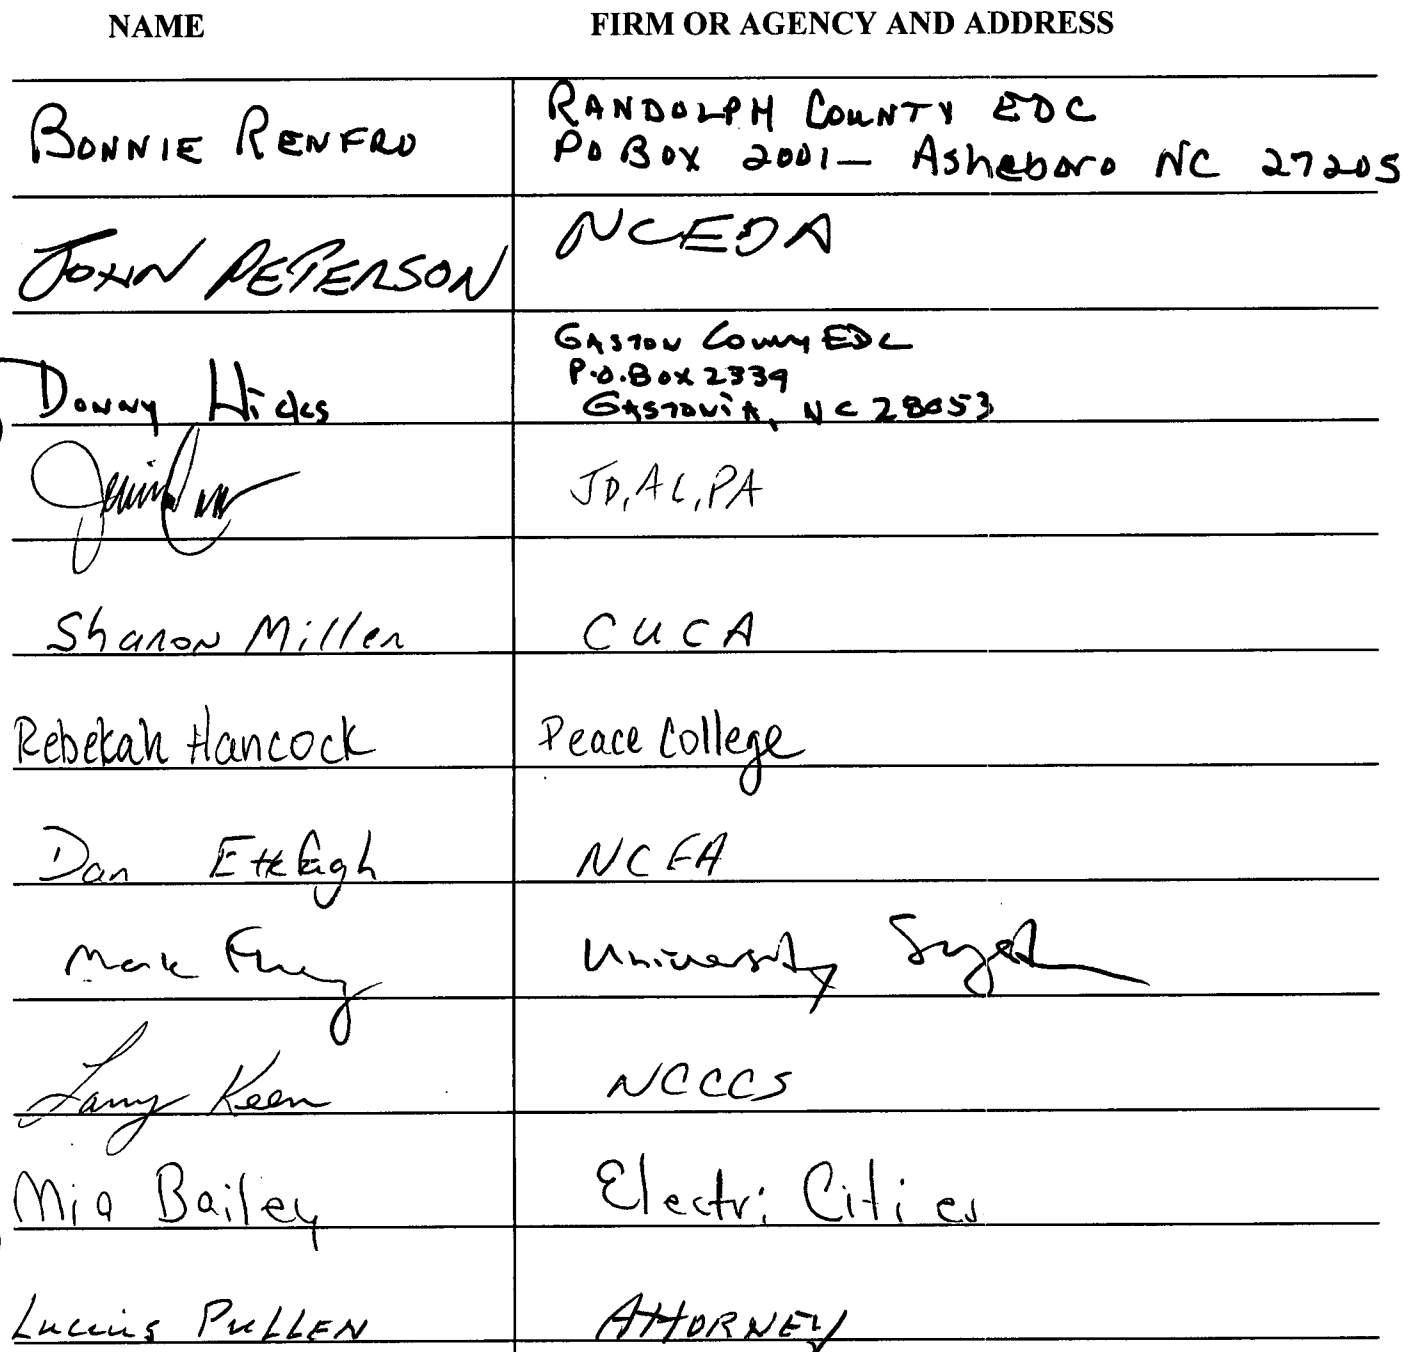 NAME FIRM OR AGENCY AND ADDRESS
BONNIE RENFRO RANDOLPH COUNTY EDC
PO BOX 2001 — Asheboro NC 27205
JOHN PETERSON NCEDA
Donny Hicks GASTON County EDC
P.O. Box 2339
GASTONIA, NC 28053
JD, AL, PA
Sharon Miller CUCA
Rebekah Hancock Peace College
Dan NCFA
Mark University System
Larry Keen NCCCS
Mia Bailey ElectriCities
Lucius PULLEN ATTORNEY